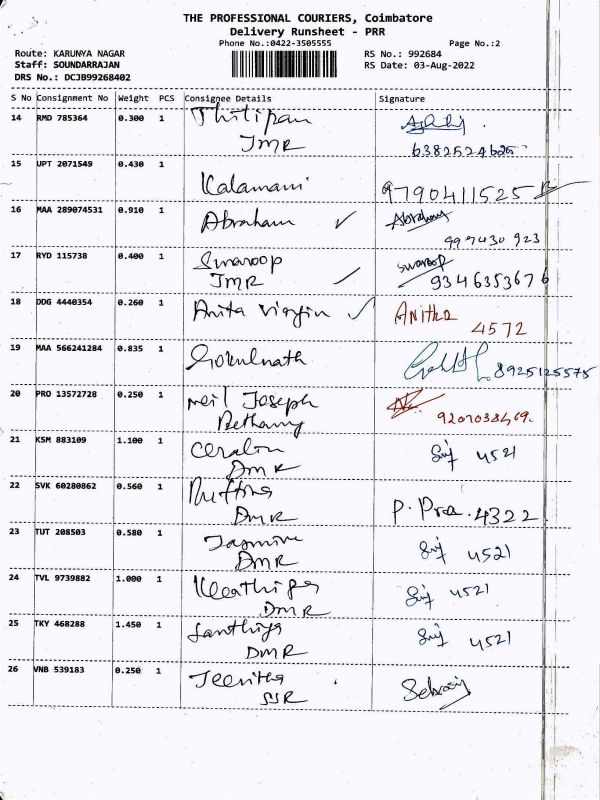 THE PROFESSIONAL COURIERS, Coimbatore
Delivery Runsheet - PRR
Phone No.:0422-3505555
Page No.:2
Route: KARUNYA NAGAR
RS No.: 992684
Staff: SOUNDARRAJAN
RS Date: 03-Aug-2022
DRS No.: DCJB99268402
S No Consignment No Weight PCS Consignee Details Signature
14 RMD 785364 0.300 1 Thilipan
JMR 6382524626
15 UPT 2071549 0.430 1
Kalamani 9790411525
16 MAA 289074531 0.910 1 Abraham ✓ Abraham
999430 923
17 RYD 115738 0.400 1 Swaroop swaroop
JMR ✓ 9346353676
18 DDG 4440354 0.260 1 Anita Virgin ✓ ANITHA
4572
19 MAA 566241284 0.835 1 Gokulnath 8925125575
20 PRO 13572728 0.250 1 Neil Joseph
Bethany 9207038469.
21 KSM 883109 1.100 1 4521
DMR
22 SVK 60280862 0.560 1
DMR P. Pra. 4322
23 TUT 208503 0.580 1 Jasmine 4521
DMR
24 TVL 9739882 1.000 1 Keathiga 4521
DMR
25 TKY 468288 1.450 1 Santhiya 4521
DMR
26 VNB 539183 0.250 1 Jeevitha
SJR